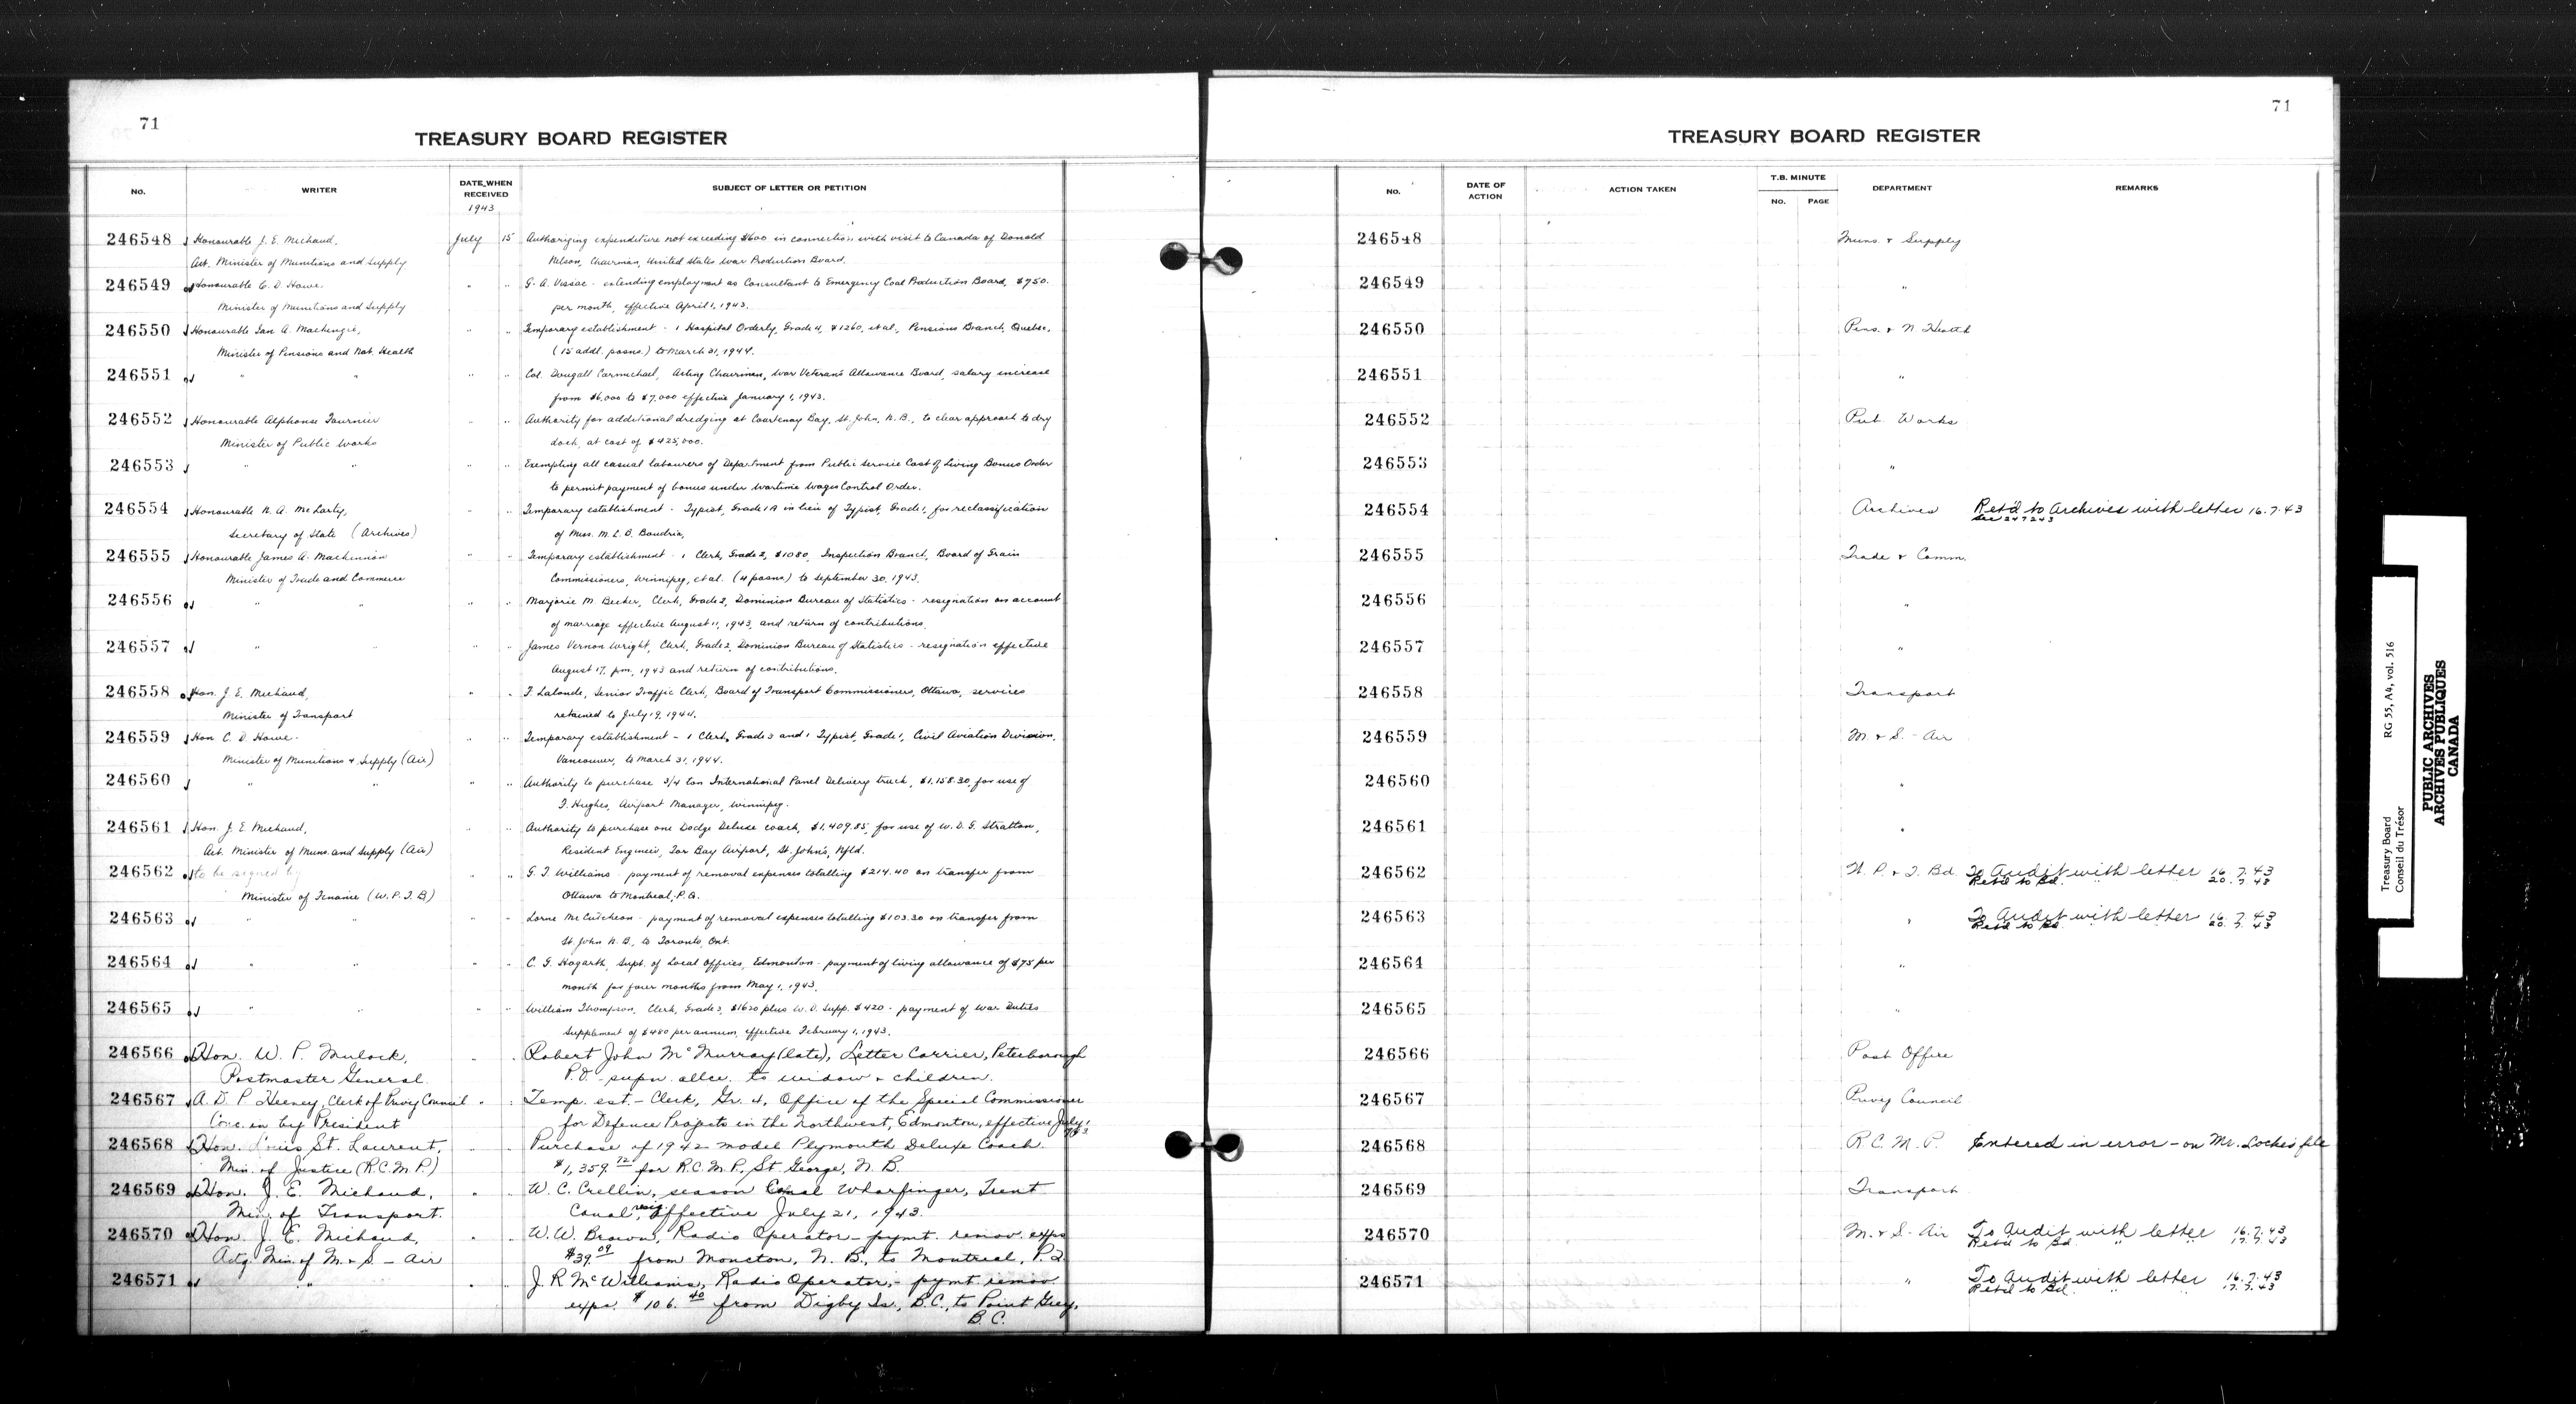 71
TREASURY BOARD REGISTER
No.
WRITER
DATE WHEN RECEIVED
1943
SUBJECT OF LETTER OR PETITION
246548 Honourable J. E. Michaud, July 15 Authorizing expenditure not exceeding $600 in connection with visit to Canada of Donald
Act. Minister of Munitions and Supply Nelson, Chairman, United States War Production Board.
246549 Honourable C. D. Howe " " G. A. Vissac - extending employment as Consultant to Emergency Coal Production Board, $750.
Minister of Munitions and Supply per month, effective April 1, 1943.
246550 Honourable Ian A. Mackenzie, " " Temporary establishment - 1 Hospital Orderly, Grade 4, $1260, et al, Pensions Branch, Quebec,
Minister of Pensions and Nat. Health (15 addl. posns.) to March 31, 1944.
246551 " " " " Col. Dougall Carmichael, Acting Chairman, War Veterans Allowance Board, salary increase
from $6,000 to $7,000 effective January 1, 1943.
246552 Honourable Alphonse Fournier " " Authority for additional dredging at Courtenay Bay, St. John, N. B., to clear approach to dry
Minister of Public Works dock, at cost of $425,000.
246553 " " " " Exempting all casual labourers of Department from Public Service Cost of Living Bonus Order
to permit payment of bonus under Wartime Wages Control Order.
246554 Honourable N. A. McLarty, " " Temporary establishment - Typist, Grade 1A in lieu of Typist, Grade 1, for reclassification
Secretary of State (Archives) of Miss. M. L. B. Boudria,
246555 Honourable James A. MacKinnon " " Temporary establishment - 1 Clerk, Grade 2, $1080, Inspection Branch, Board of Grain
Minister of Trade and Commerce Commissioners, Winnipeg, et al. (4 posns) to September 30, 1943.
246556 " " " " Marjorie M. Becker, Clerk, Grade 2, Dominion Bureau of Statistics - resignation on account
of marriage effective August 11, 1943, and return of contributions.
246557 " " " " James Vernon Wright, Clerk, Grade 2, Dominion Bureau of Statistics - resignation effective
August 17, pm, 1943 and return of contributions.
246558 Hon. J. E. Michaud, " " T. Lalonde, Senior Traffic Clerk, Board of Transport Commissioners, Ottawa, services
Minister of Transport retained to July 19, 1944.
246559 Hon C. D. Howe. " " Temporary establishment - 1 Clerk, Grade 3 and 1 Typist, Grade 1, Civil Aviation Division,
Minister of Munitions & Supply (Air) Vancouver, to March 31, 1944.
246560 " " " " Authority to purchase 3/4 ton International Panel Delivery truck, $1,158.30, for use of
T. Hughes, Airport Manager, Winnipeg.
246561 Hon. J. E. Michaud, " " Authority to purchase one Dodge Deluxe coach, $1,409.85, for use of W. D. G. Stratton,
Act. Minister of Muns. and Supply (Air) Resident Engineer, Tor Bay Airport, St. John's, Nfld.
246562 to be signed by " " G. T. Williams - payment of removal expenses totalling $214.40 on transfer from
Minister of Finance (W.P.T.B) Ottawa to Montreal, P.Q.
246563 " " " " Lorne McCutcheon - payment of removal expenses totalling $103.30 on transfer from
St. John N. B., to Toronto, Ont.
246564 " " " " C. G. Hogarth, Supt. of Local Offices, Edmonton - payment of living allowance of $75 per
month for four months from May 1, 1943.
246565 " " " " William Thompson, Clerk, Grade 3, $1620 plus W. D. Supp. $420 - payment of War Duties
Supplement of $480 per annum, effective February 1, 1943.
246566 Hon. W. P. Mulock, " " Robert John McMurray (late), Letter Carrier, Peterborough
Postmaster General. P.O. - supn. allce. to widow & children.
246567 A. D. P. Heeney, Clerk of Privy Council " " Temp. est. - Clerk, Gr. 4, Office of the Special Commissioner
Conc. in by President for Defence Projects in the Northwest, Edmonton, effective July 1, 1943
246568 Hon. Louis St. Laurent, " " Purchase of 1942 model Plymouth Deluxe Coach
Min. of Justice (R.C.M.P.) $1,359.72 for R.C.M.P., St George, N. B.
246569 Hon. J. E. Michaud, " " W. C. Crellin, season Canal Wharfinger, Trent
Min. of Transport. Canal, resig. effective July 21, 1943.
246570 Hon. J. E. Michaud, " " W. W. Brown, Radio Operator - pymt. remov. exps
Actg. Min. of M. & S. - Air $39.09 from Moncton, N. B., to Montreal, P.Q.
246571 " " " J. R. McWilliams, Radio Operator, - pymt. remov.
exps. $106.40 from Digby Is., B.C., to Point Grey,
B. C.
71
TREASURY BOARD REGISTER
No.
DATE OF ACTION
ACTION TAKEN
T.B. MINUTE
No.
PAGE
DEPARTMENT
REMARKS
246548 Muns. & Supply
246549 "
246550 Pens. & N. Health
246551 "
246552 Pub. Works
246553 "
246554 Archives Ret'd to Archives with letter 16.7.43
See 247243
246555 Trade & Comm.
246556 "
246557 "
246558 Transport
246559 M. & S. - Air
246560 "
246561 "
246562 W. P. & T. Bd. To Audit with letter 16.7.43
Ret'd to Bd. " " 20.7.43
246563 " To Audit with letter 16.7.43
Ret'd to Bd. " " 20.7.43
246564 "
246565 "
246566 Post Office
246567 Privy Council
246568 R.C.M.P. Entered in error - on Mr. Locke's file
246569 Transport
246570 M. & S. - Air To Audit with letter 16.7.43
Ret'd to Bd " " 17.7.43
246571 " To Audit with letter 16.7.43
Ret'd to Bd. " " 17.7.43
Treasury Board RG 55, A4, vol. 516
Conseil du Trésor
PUBLIC ARCHIVES
ARCHIVES PUBLIQUES
CANADA